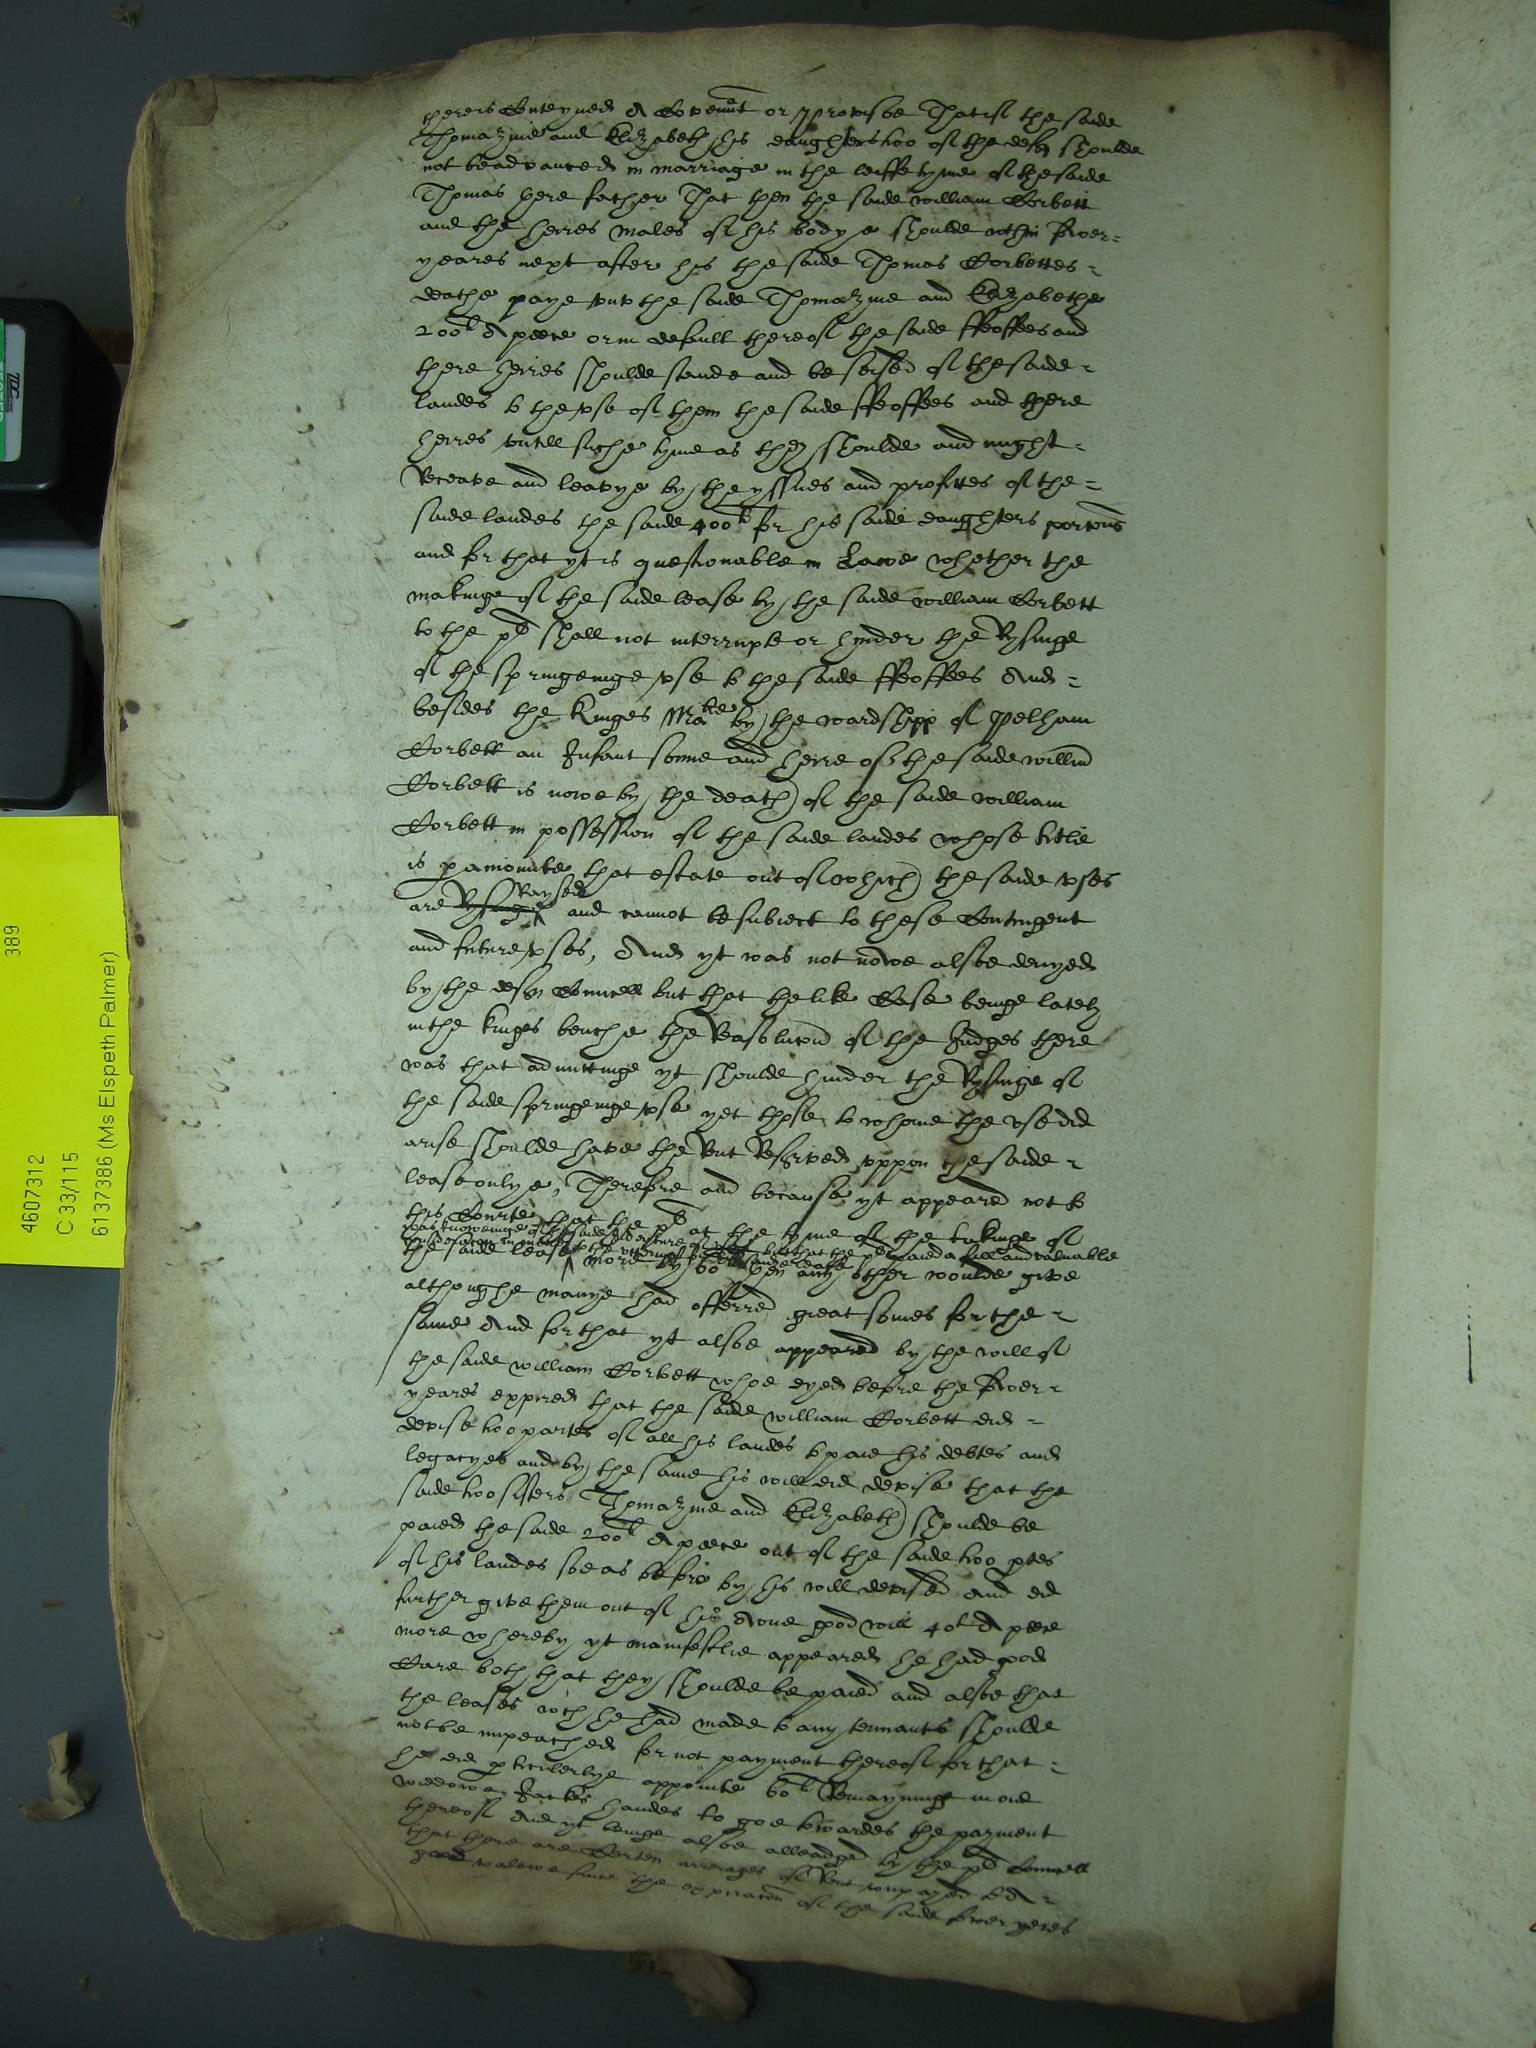 there is Conteyned A Covennt or Provisoe That if the saide
Thomazine and Elizabeth his daughters two of the defts shoulde
not be advanced in marriage in the leiffe tyme of the saide
Thomas there father That then the saide william Corbett
and the heires males of his bodye shoulde wthin fower
yeares next after his the saide Thomas Corbettes
deathe paye unto the saide Thomazine and Elizabethe
200l A peece or in default thereof the saide ffeoffees and
there heires shoulde stande and be seised of the saide
landes to the use of them the saide ffeoffees and there
heires untill suche tyme as they shoulde and might
Receave and leavye by the yssues and profittes of the
saide landes the saide 400l for his saide daughters portions
and for that yt is questionable in Lawe whether the
makinge of the saide lease by the saide william Corbett
to the pl shall not interrupte or hinder the Rysinge
of the springeinge use to the saide ffeoffees And
besides the Kinges Matie by the wardshipp of Pelham
Corbett an Infant sonne and heire of the saide willm
Corbett is nowe by the death of the saide william
Corbett in possession of the saide landes whose title
is paramounte that estate out of which the saide uses
are Raysed and cannot be subiect to these Contingent
and future uses, And yt was not nowe alsoe denyed
by the defts Councell but that the like Case beinge lately
in the kinges benche the Resolucon of the Judges there
was that admittinge yt shoulde hinder the Rysinge of
the saide springeinge use yet those to whome the use did
arise shoulde have the Rent Reserved uppon the saide
lease onlye, Therefore and because yt appeared not to
this Courte that the pl at the tyme of the takinge of
was knoweinge of the saide Indenture of but that the pl paied a full and valuable
the saide lease more by 60l then any other woulde give
althoughe manye had offerred great somes for the
same And for that yt alsoe appeared by the will of
the saide william Corbett whoe dyed before the fower
yeares expired that the saide william Corbett did
devise two partes of all his landes to paie his debtes and
legacyes and by the same his will did devise that the
saide two sisters Thomazine and Elizabeth shoulde be
paied the saide 200l A peece out of the saide two ptes
of his landes soe as before by his will devised and did
further give them out of his Owne good will 40l A peece
more whereby yt manifestlie appeared he had good
Care both that they shoulde be paied and alsoe that
the leases wch he had made to any tennants shoulde
not be impeached for not payment thereof for that
he did pticulerlye appointe 60l Remayninge in one
widdowe Jackes handes to goe towardes the payment
thereof And yt beinge alsoe alleadged by the pl Councell
that there are Certen arrerages of Rent unpayed to A
good valewe since the expiracon of the saide fower yeres
4607312
389
C 33/115
6137386 (Ms Elspeth Palmer)